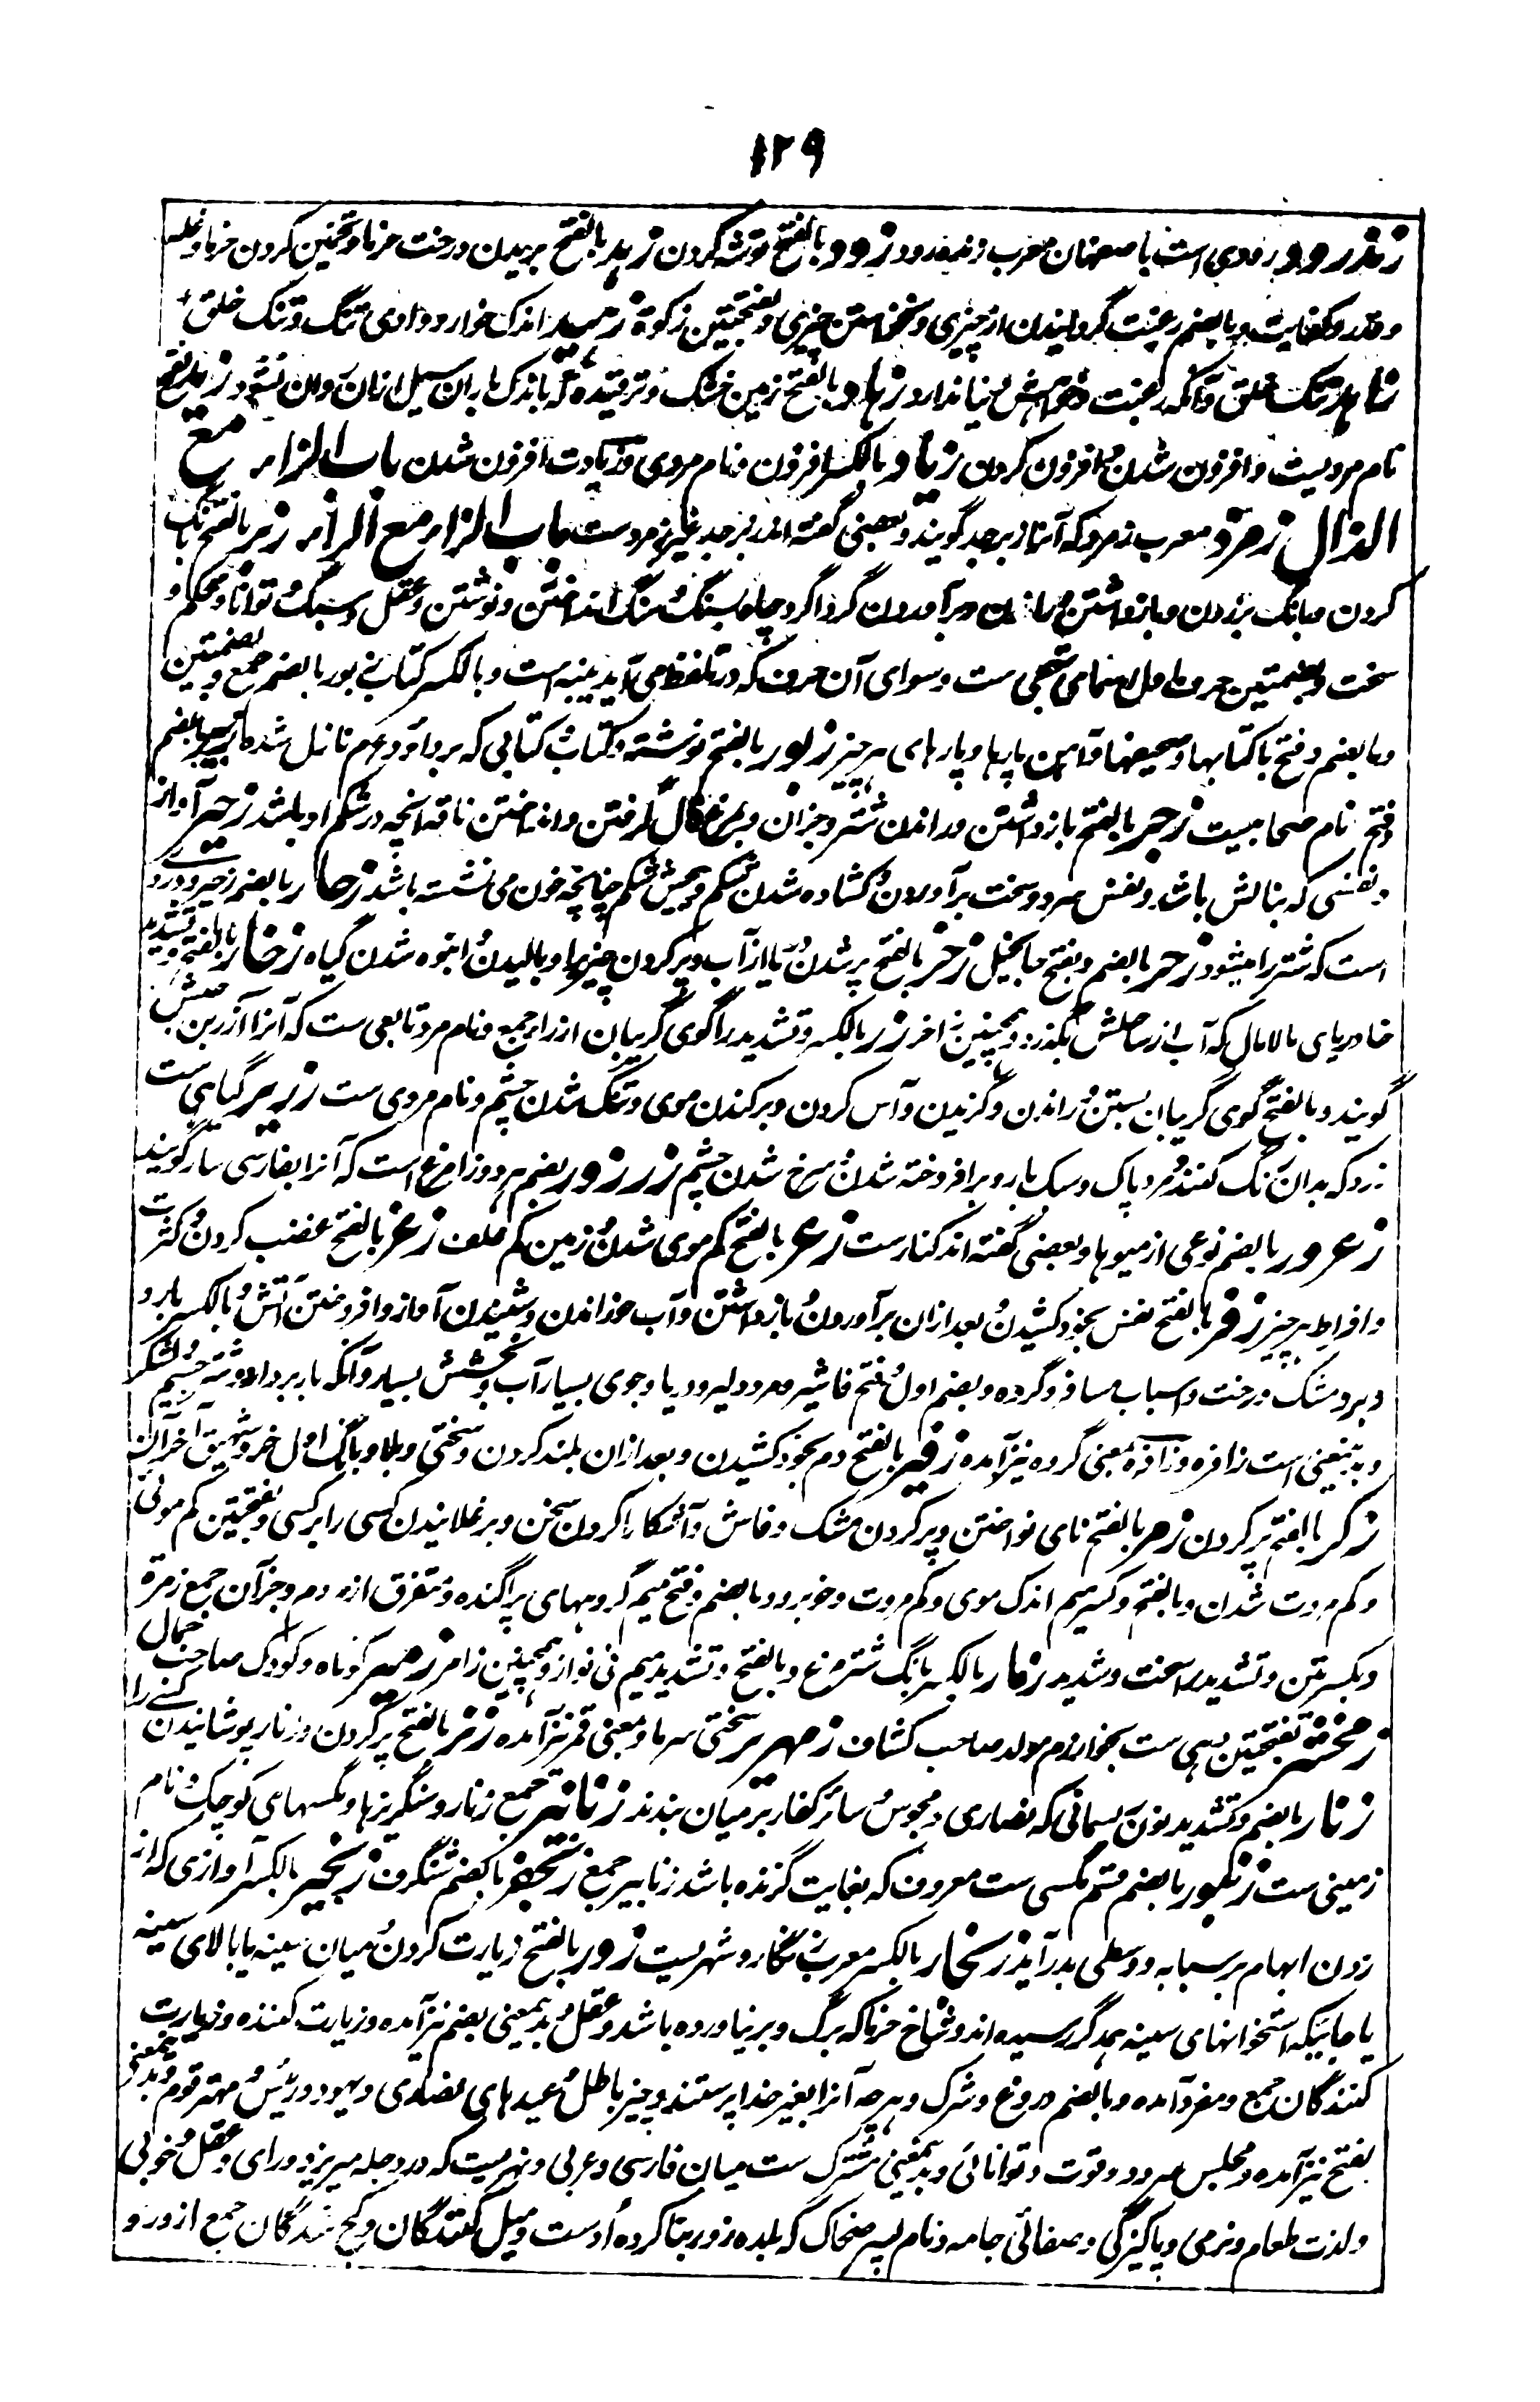 ۱۲۹
زنذرود رودی است باصفهان معرب زنده‌رود زود بالفتح توشه کردن زبد بالفتح بریدن درخت خرما و تخمین کردن خرما و غله
و قدر و کفایت و بالضم رغبت گردانیدن از چیزی و نخواستن چیزی و بفتحتین زکوة زهید اندک خوار و وادی تنگ و تنک خلق
زاهد تنک خلق و آنکه رغبت و خواهش دنیا ندارد زهاد بالفتح زمین خشک که باندک باران سیل ازان روان شود زید بالفتح
نام مردیست و افزون شدن و افزون کردن زیاد بالکسر افزون و نام مردی و زیادت افزون شدن باب الزاء مع
الذال زمرذ معرب زمرد که آنرا زبرجد گویند و بعضی گفته اند زبرجد غیر زمردست باب الزاء مع الراء زبر بالفتح بانگ
کردن و بانگ برزدن و بازداشتن و برآوردن گرداگرد چاه بسنگ و سنگ انداختن و نوشتن و عقل و سبک و توانا و محکم و
سخت و بضمتین حرف اول اسمای تهجی ست و سوای آن حرف که در تلفظ می آید بینه است و بالکسر کتاب زبور بالضم جمع و بضمتین
و بالضم و فتح با کتابها و صحیفها و آهن پارها و پارهای هر چیز زبور بالفتح نوشته و کتاب و کتابی که بر داود عم نازل شده زبیر بالضم
و فتح نام صحابیست زجر بالفتح بازداشتن و راندن شتر و جزان و بمرغ فال گرفتن و انداختن ناقه آنچه در شکم او باشد زحیر آواز
و نفسی که بنالش باشد و نفس سرد و سخت برآوردن و کشاده شدن شکم و پیچش شکم چنانچه خون می نشسته باشد زحار بالضم زحیر و دردی
است که شتر را میشود زحر بالضم و بفتح حا بخیل زخر بالفتح پر شدن دریا از آب و پر کردن چیزی را و بالیدن و انبوه شدن گیاه زخار بالفتح و تشدید
خا دریای مالامال که آب از ساحلش بگذرد و همچنین زاخر زر بالکسر و تشدید را گوی گریبان ازرار جمع و نام مرد تابعی ست که آنرا زر بن حبیش
گویند و بالفتح گوی گریبان بستن و راندن و گزیدن و آس کردن و برکندن موی و تنگ شدن چشم و نام مردی ست زریر گیاهی ست
زرد که بدان رنگ کنند و مرد پاک و سبک بار و برافروخته شدن و سرخ شدن چشم زرزور بضم هر دو زا مرغ است که آنرا بفارسی سار گویند
زعرور بالضم نوعی از میوها و بعضی گفته اند کنارست زعر بالفتح کم موی شدن و زمین کم علف زغر بالفتح غضب کردن و کثرت
و افراط هر چیز زفر بالفتح نفس بخود کشیدن و بعد ازان برآوردن و بازداشتن و آب خوراندن و شنیدن آواز و افروختن آتش و بالکسر بار
و مشک و رخت و اسباب مسافر و گروه و بضم اول و فتح فا شیر و مرد دلیر و دریا و جوی بسیار آب و بخشش بسیار و آنکه بار بردارد و لشکر
و بدینمعنی است زافره و زافرة بمعنی گروه نیز آمده زفیر بالفتح دم بخود کشیدن و بعد ازان بلند کردن و سختی و بلا و بانگ اول خر و شهیق آخر آن
زکر بالفتح پر کردن زمر بالفتح نای نواختن و پر کردن مشک و فاش و آشکارا کردن سخن و برغلانیدن کسی را بر کسی و بفتحتین کم موئی
و کم مروت شدن و بالفتح و کسر میم اندک موی و کم مروت و خوبرو و بالضم و فتح میم گروههای پراگنده و متفرق از مردم و جزآن جمع زمرة
و بکسرتین و تشدید را سخت و شدید زمار بالکسر بانگ شترمرغ و بالفتح و تشدید میم نی نواز و همچنین زامر زمیر کوتاه و کودک صاحب جمال
زمخشر بفتحتین دهی ست بخوارزم مولد صاحب کشاف زمهریر سختی سرما و بمعنی قمر نیز آمده زنر بالفتح پر کردن و زنار پوشانیدن کسی را
زنار بالضم و تشدید نون ریسمانی که نصاری و مجوس و سائر کفار بر میان بندند زنانیر جمع زنار و سنگریزها و مگسهای کوچک و نام
زمینی ست زنبور بالضم قسم مگسی ست معروف که بغایت گزنده باشد زنابیر جمع زنجفر بالضم شنگرف زنجیر بالکسر آوازی که از
زدن ابهام بر سبابه و وسطی بدر آید زنجار بالکسر معرب زنگار و شهریست زور بالفتح زیارت کردن و میان سینه یا بالای سینه
یا جائیکه استخوانهای سینه بهمدگر رسیده اند و شاخ خرما که برگ و بر نیاورده باشد و عقل و بدینمعنی بضم نیز آمده و زیارت کننده و زیارت
کنندگان جمع و مفرد آمده و بالضم دروغ و شرک و هر چه آنرا بغیر خدا پرستند و چیز باطل و عیدهای نصاری و یهود و رئیس و مهتر قوم و بدینمعنی
بفتح نیز آمده و مجلس سرود و قوت و توانائی و بدینمعنی مشترک ست میان فارسی و عربی و نهریست که در دجله میریزد و رای و عقل و خوبی
و لذت طعام و نرمی و پاکیزگی و صفائی جامه و نام پسر ضحاک که بلده زور بنا کرده اوست و میل کنندگان و کج شدگان جمع ازور و